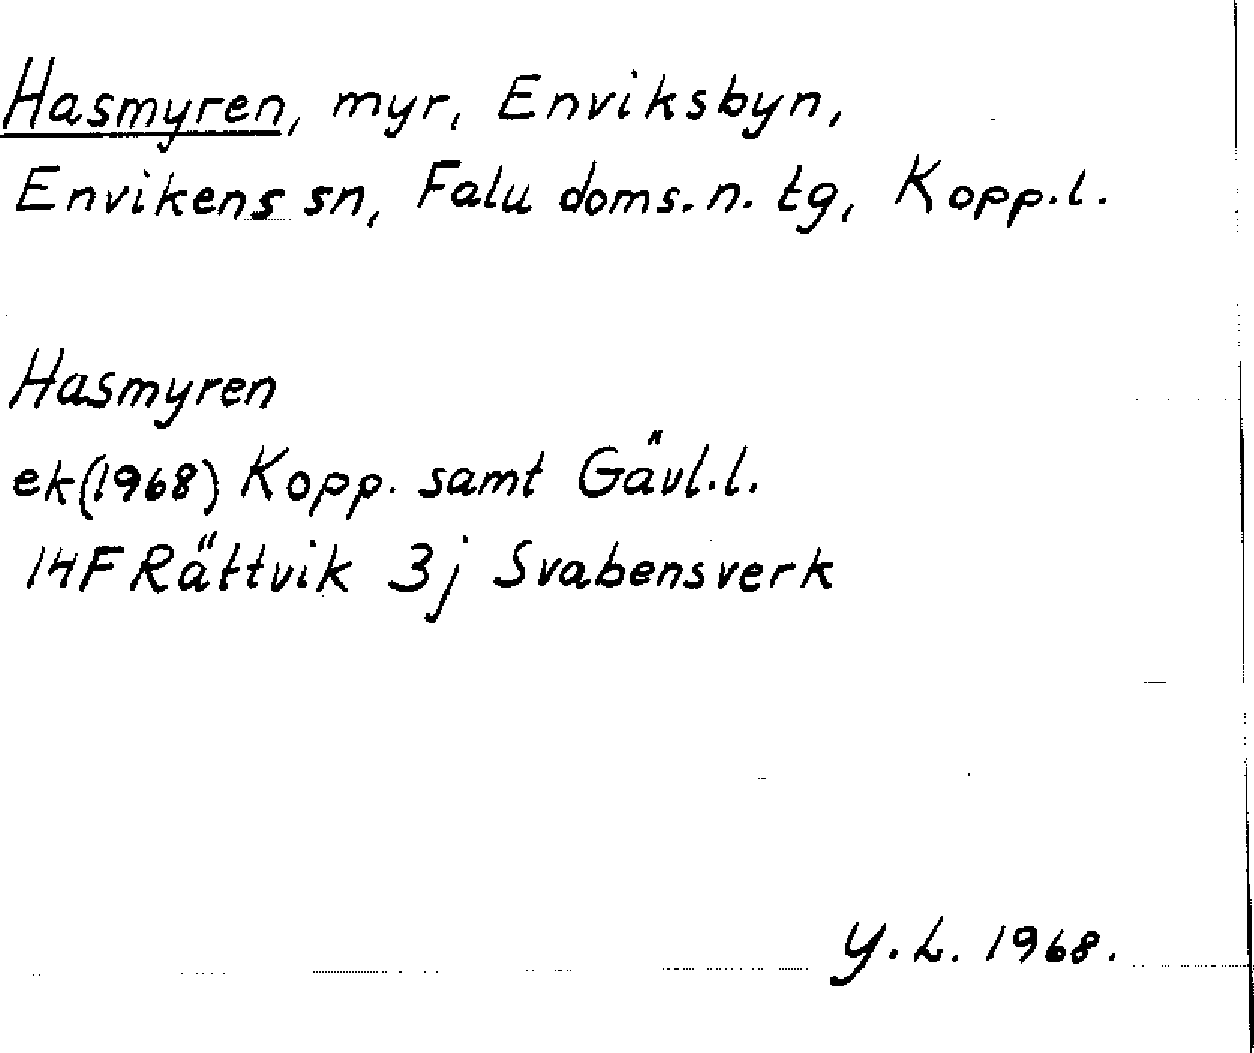 Hasmyren, myr, Enviksbyn,
Envikens sn, Falu doms.n. tg, Kopp.l.
Hasmyren
ek(1968) Kopp. samt Gävl.l.
14F Rättvik 3j Svabensverk
Y.L. 1968.